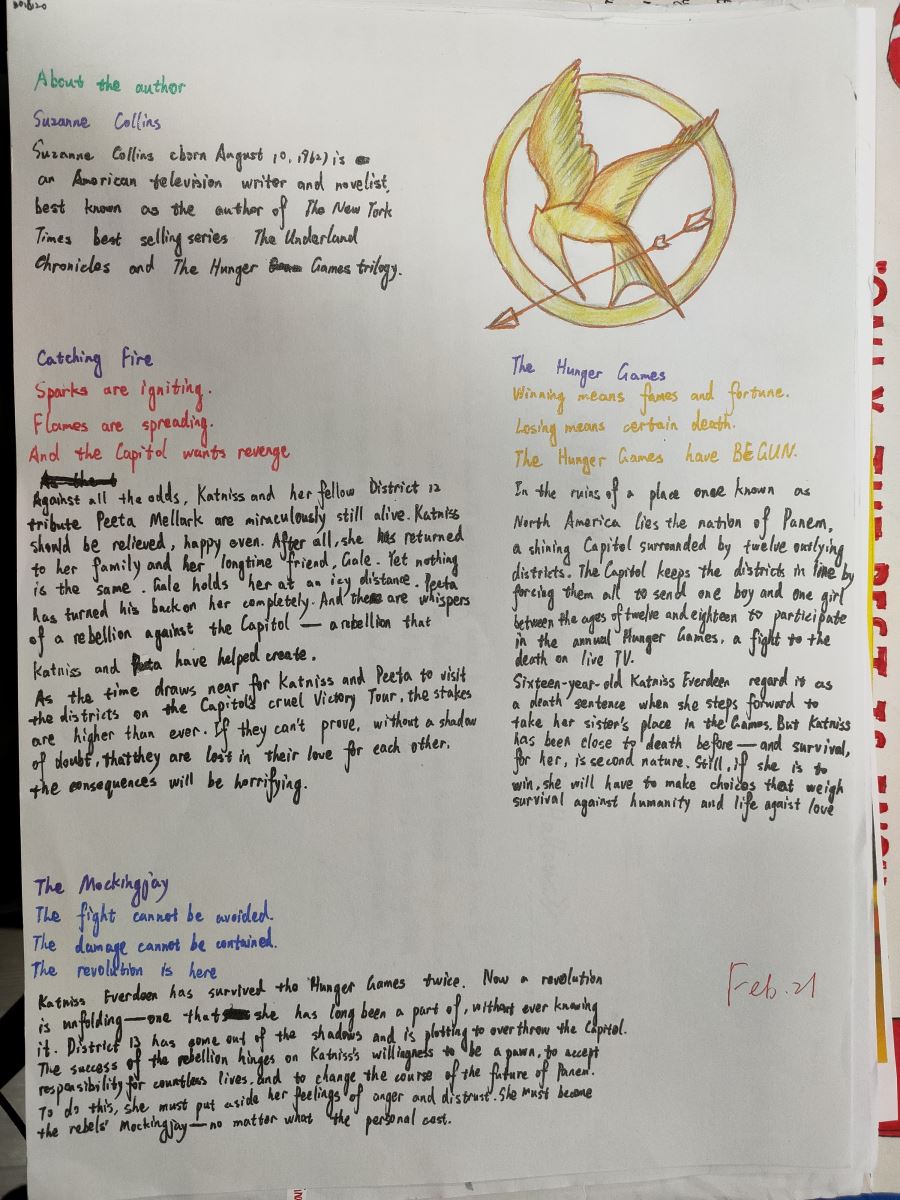 About the author
Suzanne Collins
Suzanne Collins (born August 10, 1962) is
an American television writer and novelist,
best known as the author of The New York
Times best selling series The Underland
Chronicles and The Hunger Games trilogy.
Catching Fire
Sparks are igniting.
Flames are spreading.
And the Capitol wants revenge
Against all the odds, Katniss and her fellow District 12
tribute Peeta Mellark are miraculously still alive. Katniss
should be relieved, happy even. After all, she has returned
to her family and her longtime friend, Gale. Yet nothing
is the same. Gale holds her at an icy distance. Peeta
has turned his back on her completely. And there are whispers
of a rebellion against the Capitol — a rebellion that
Katniss and Peeta have helped create.
As the time draws near for Katniss and Peeta to visit
the districts on the Capitol's cruel Victory Tour, the stakes
are higher than ever. If they can't prove, without a shadow
of doubt, that they are lost in their love for each other.
the consequences will be horrifying.
The Hunger Games
Winning means fames and fortune.
Losing means certain death.
The Hunger Games have BEGUN.
In the ruins of a place once known as
North America lies the nation of Panem,
a shining Capitol surrounded by twelve outlying
districts. The Capitol keeps the districts in line by
forcing them all to send one boy and one girl
between the ages of twelve and eighteen to participate
in the annual Hunger Games, a fight to the
death on live TV.
Sixteen-year-old Katniss Everdeen regard it as
a death sentence when she steps forward to
take her sister's place in the Games. But Katniss
has been close to death before — and survival,
for her, is second nature. Still, if she is to
win, she will have to make choices that weigh
survival against humanity and life agaist love
The Mockingjay
The fight cannot be avoided.
The damage cannot be contained.
The revolution is here
Katniss Everdeen has survived the Hunger Games twice. Now a revolution
is unfolding — one that she has long been a part of, without ever knowing
it. District 13 has come out of the shadows and is plotting to overthrow the Capitol.
The success of the rebellion hinges on Katniss's willingness to be a pawn, to accept
responsibility for countless lives, and to change the course of the future of Panem.
To do this, she must put aside her feelings of anger and distrust. She must become
the rebels' Mockingjay — no matter what the personal cost.
Feb. 21